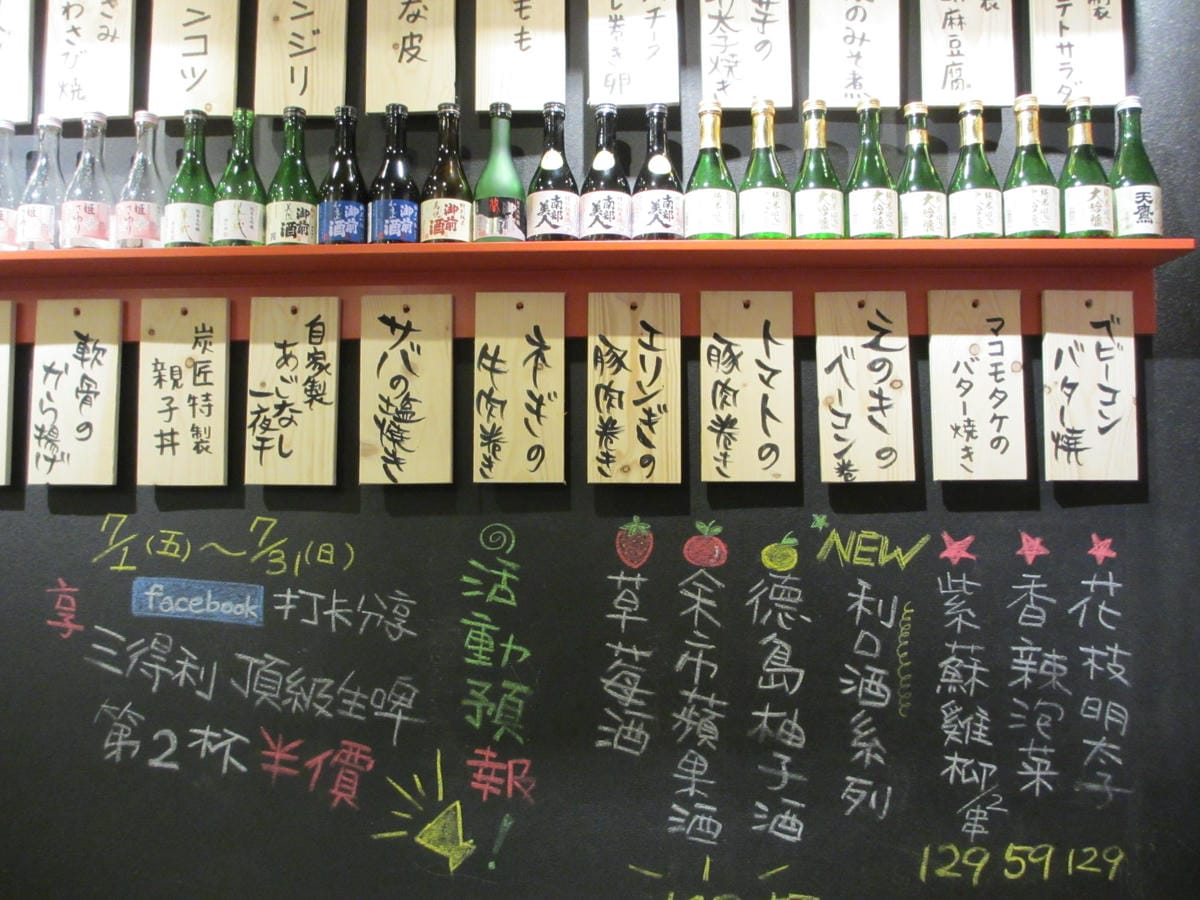 さみ
わさび焼
ンコツ
ンジリ
な皮
もも
チーク
し巻き卵
芋の
太子焼き
のみそ煮
麻麻豆腐
製
テトサラダ
御前酒
御前酒
南部美人
南部美人
南部美人
大吟醸
大吟醸
大吟醸
天鷹
軟骨の
から揚げ
炭匠特製
親子丼
自家製
あごなし
一夜干
サバの塩焼き
ネギの
牛肉巻き
エリンギの
豚肉巻き
トマトの
豚肉巻き
えのきの
ベーコン巻
マコモタケの
バター焼き
ズビーコン
バター焼
7/1(五)～7/31(日)
facebook打卡分享
享
三得利 頂級生啤
第2杯半價
活動預報!
草莓酒
余市蘋果酒
德島柚子酒
NEW
利口酒系列
紫蘇雞柳/2串
129
香辣泡菜
59
花枝明太子
129